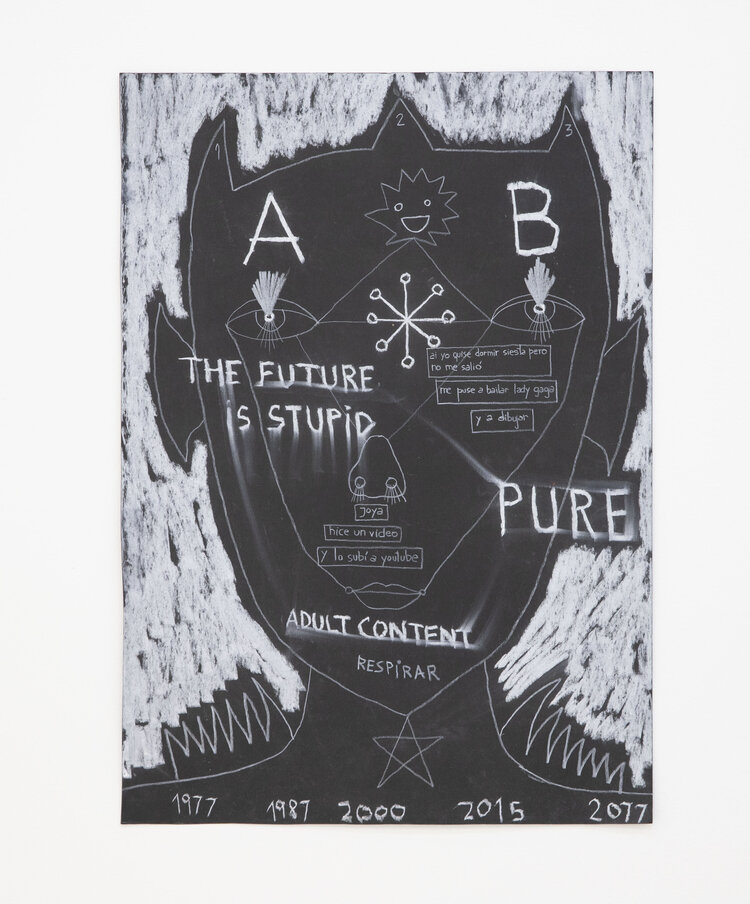 1
2
3
A
B
THE FUTURE
IS STUPID
ai yo quise dormir siesta pero
no me salió
me puse a bailar lady gaga
y a dibujar
PURE
joya
hice un video
y lo subí a youtube
ADULT CONTENT
RESPIRAR
1977 1987 2000 2015 2077